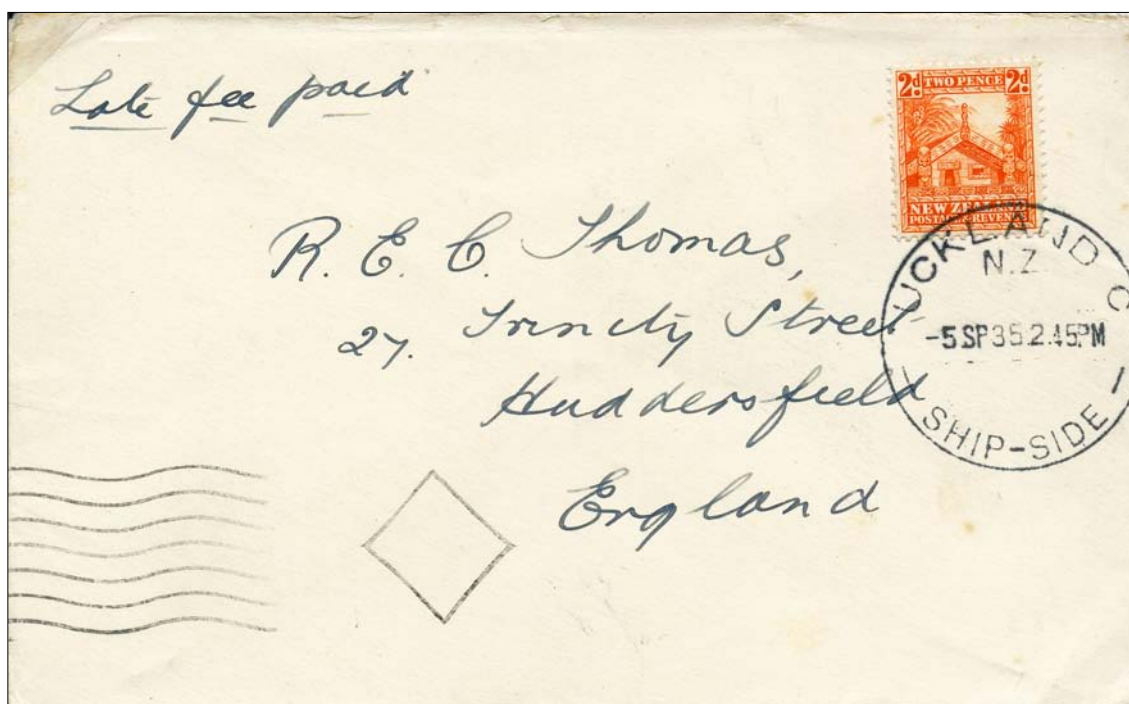 Late fee paid
2d TWO PENCE 2d
NEW ZEALAND
POSTAGE & REVENUE
R. E. C. Thomas,
27. Trinity Street
Huddersfield
England
UCKLAND C
N.Z.
-5 SP 35 2.45 PM
SHIP-SIDE